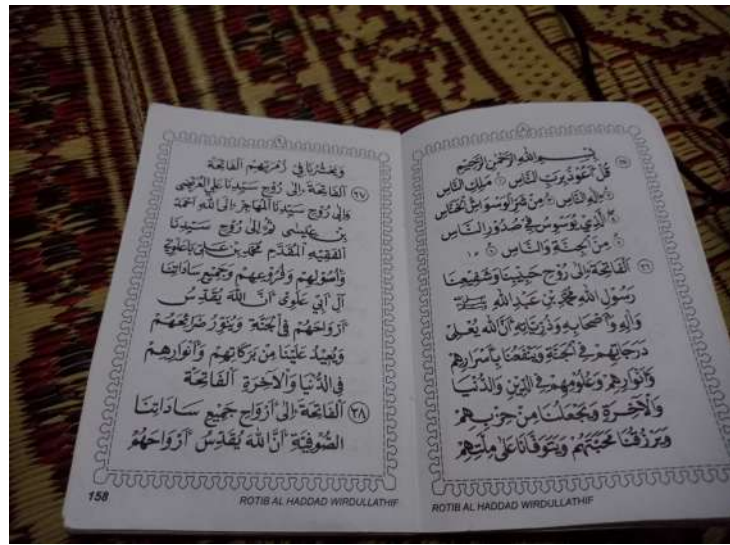 بِسْمِ اللهِ الرَّحْمٰنِ الرَّحِيْمِ
٢٥ قُلْ أَعُوْذُ بِرَبِّ النَّاسِ ۝ مَلِكِ النَّاسِ
۝ إِلٰهِ النَّاسِ ۝ مِنْ شَرِّ الْوَسْوَاسِ الْخَنَّاسِ
۝ الَّذِيْ يُوَسْوِسُ فِيْ صُدُوْرِ النَّاسِ
۝ مِنَ الْجِنَّةِ وَالنَّاسِ ۝
٢٦ اَلْفَاتِحَةَ إِلٰى رُوْحِ حَبِيْبِنَا وَشَفِيْعِنَا
رَسُوْلِ اللهِ مُحَمَّدِ بْنِ عَبْدِ اللهِ ﷺ
وَاٰلِهِ وَأَصْحَابِهِ وَذُرِّيَّاتِهِ أَنَّ اللهَ يُعْلِيْ
دَرَجَاتِهِمْ فِي الْجَنَّةِ وَيَنْفَعُنَا بِأَسْرَارِهِمْ
وَأَنْوَارِهِمْ وَعُلُوْمِهِمْ فِي الدِّيْنِ وَالدُّنْيَا
وَالْاٰخِرَةِ وَيَجْعَلُنَا مِنْ حِزْبِهِمْ
وَيَرْزُقُنَا مَحَبَّتَهُمْ وَيَتَوَفَّانَا عَلٰى مِلَّتِهِمْ
ROTIB AL HADDAD WIRDULLATHIF
وَيَحْشُرُنَا فِيْ زُمْرَتِهِمْ اَلْفَاتِحَةَ
٢٧ اَلْفَاتِحَةَ إِلٰى رُوْحِ سَيِّدِنَا عَلِيِّ الْعُرَيْضِى
وَإِلٰى رُوْحِ سَيِّدِنَا الْمُهَاجِرِ إِلَى اللهِ أَحْمَدَ
بْنِ عِيْسٰى ثُمَّ إِلٰى رُوْحِ سَيِّدِنَا
اَلْفَقِيْهِ الْمُقَدَّمِ مُحَمَّدِ بْنِ عَلِيْ بَاعَلَوِيْ
وَأُصُوْلِهِمْ وَفُرُوْعِهِمْ وَجَمِيْعِ سَادَاتِنَا
آلِ أَبِيْ عَلَوِيْ أَنَّ اللهَ يُقَدِّسُ
أَرْوَاحَهُمْ فِي الْجَنَّةِ وَيُنَوِّرُ ضَرَائِحَهُمْ
وَيُعِيْدُ عَلَيْنَا مِنْ بَرَكَاتِهِمْ وَأَنْوَارِهِمْ
فِي الدُّنْيَا وَالْاٰخِرَةِ اَلْفَاتِحَةَ
٢٨ اَلْفَاتِحَةَ إِلٰى أَرْوَاحِ جَمِيْعِ سَادَاتِنَا
الصُّوْفِيَّةِ أَنَّ اللهَ يُقَدِّسُ أَرْوَاحَهُمْ
158
ROTIB AL HADDAD WIRDULLATHIF